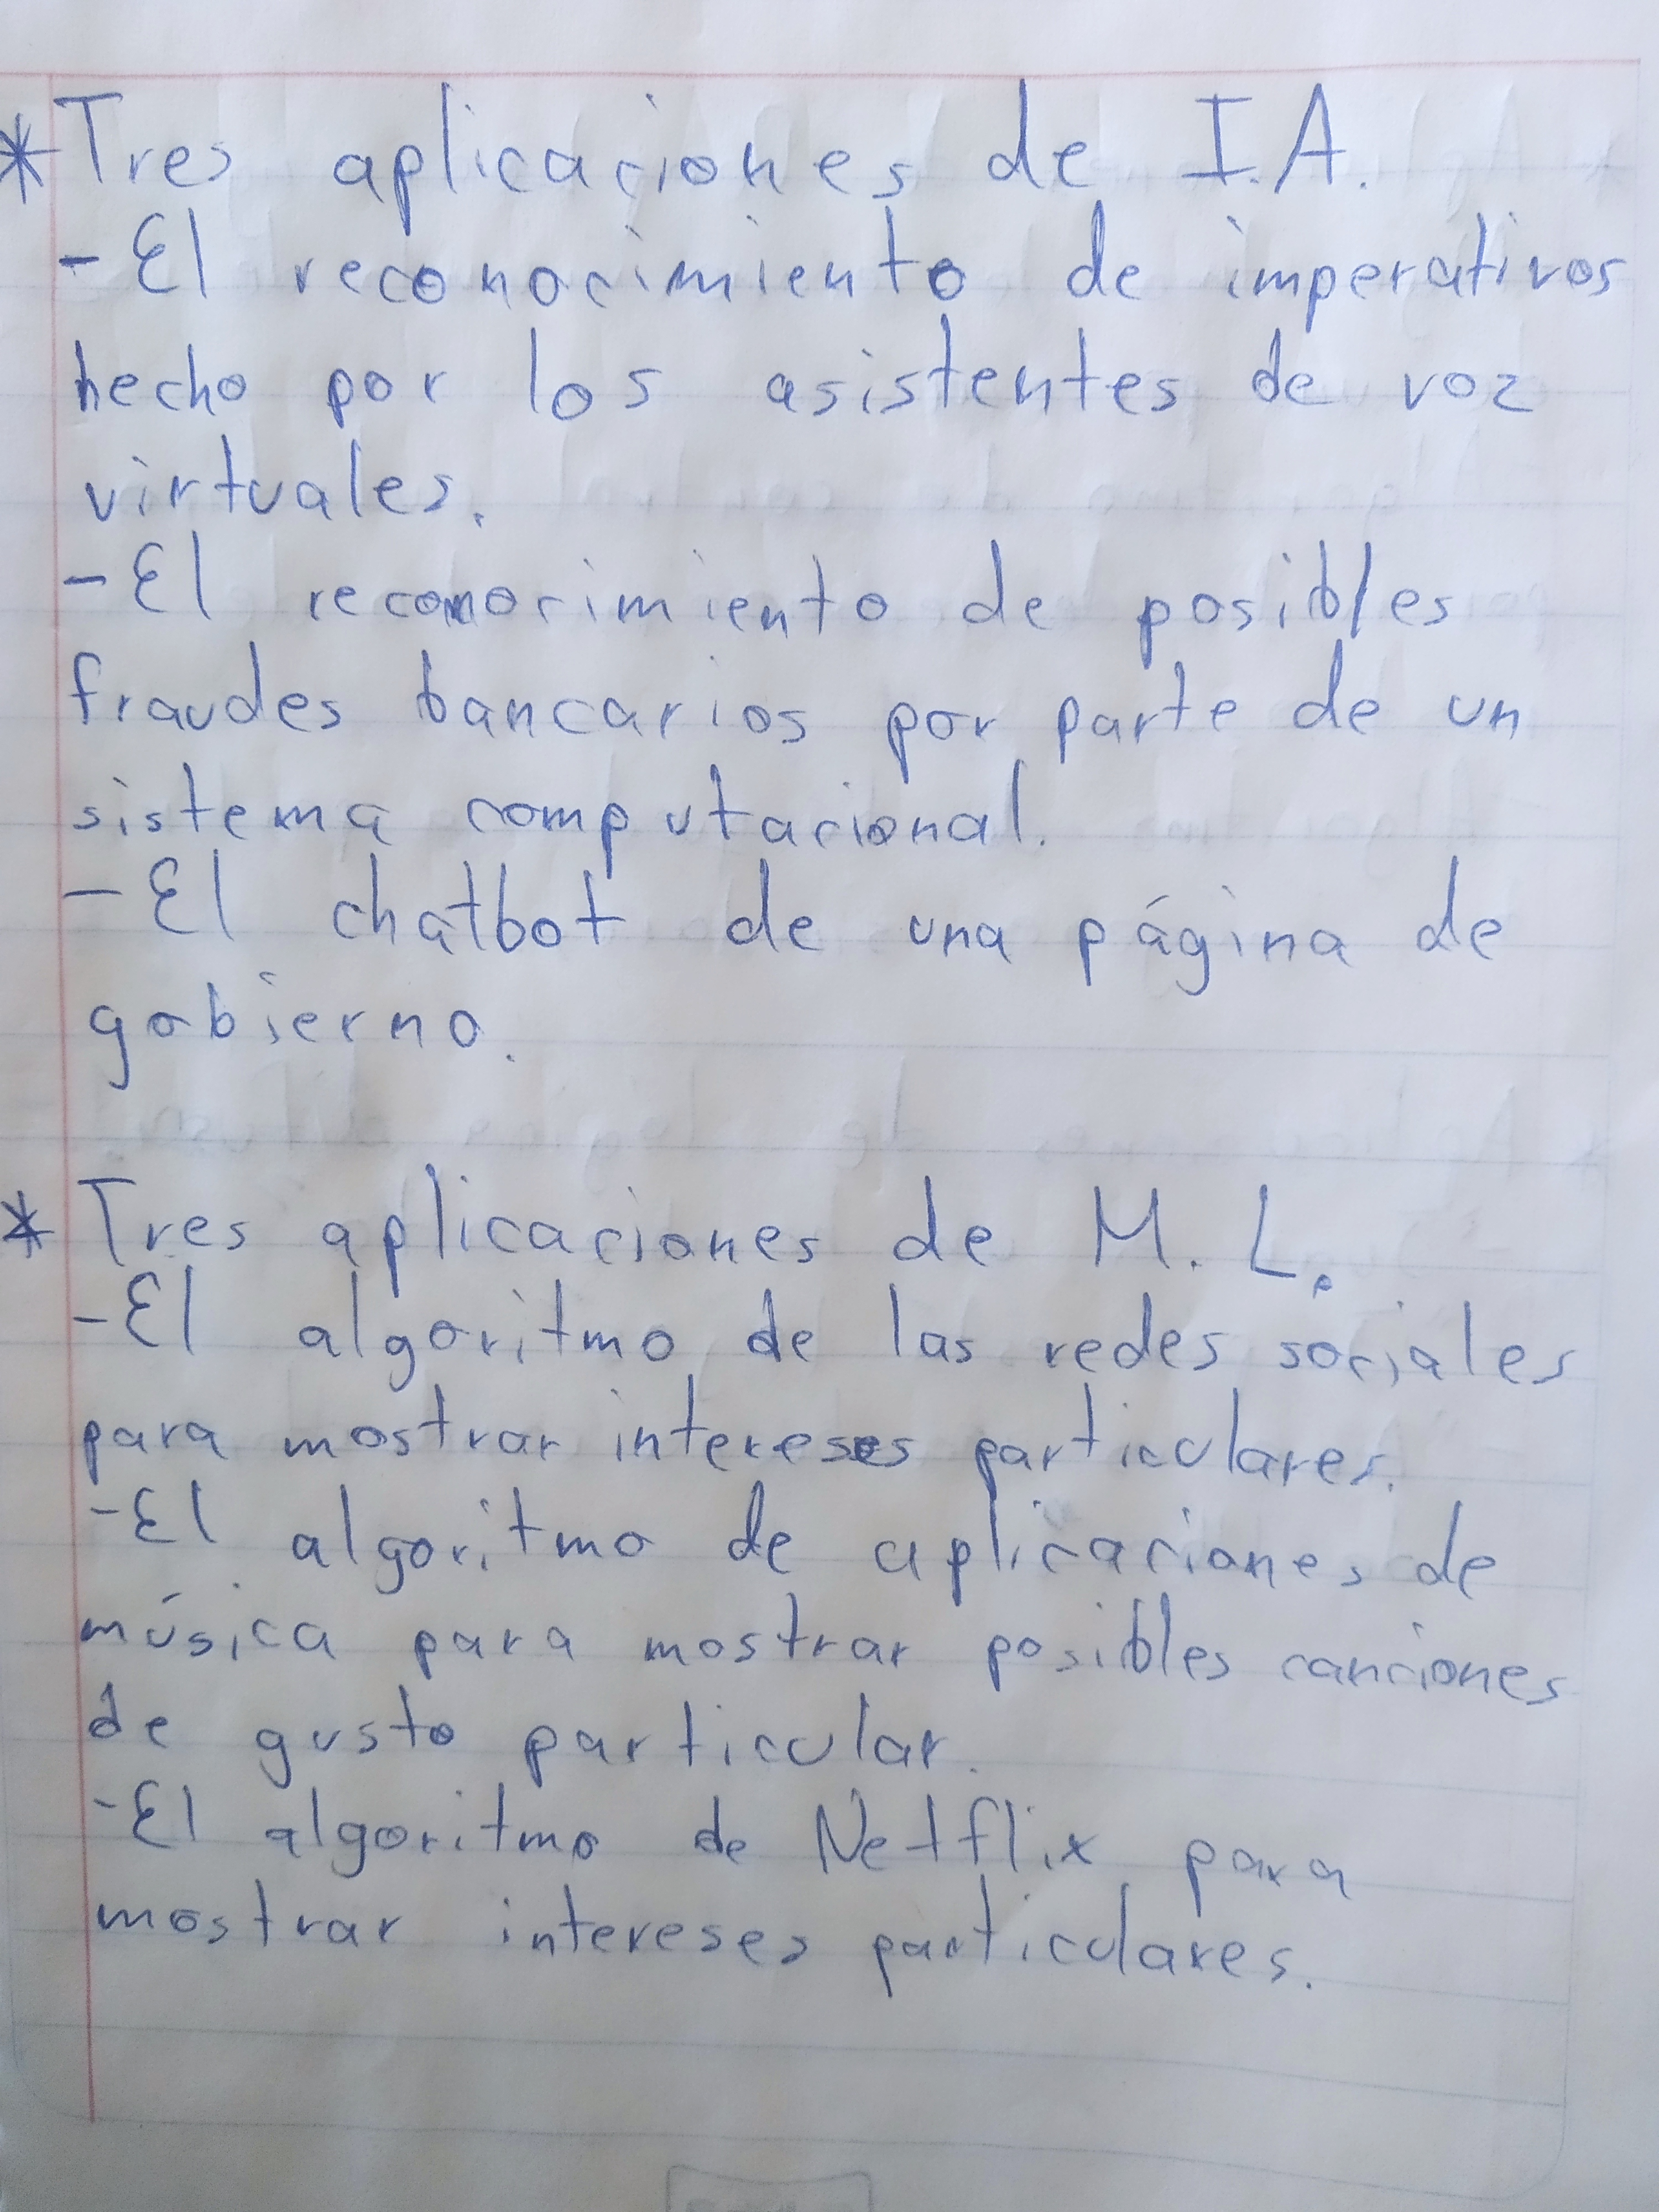 * Tres aplicaciones de I.A.
- El reconocimiento de imperativos
hecho por los asistentes de voz
virtuales.
- El reconocimiento de posibles
fraudes bancarios por parte de un
sistema computacional.
- El chatbot de una página de
gobierno.
* Tres aplicaciones de M. L.
- El algoritmo de las redes sociales
para mostrar intereses particulares.
- El algoritmo de aplicaciones de
música para mostrar posibles canciones
de gusto particular.
- El algoritmo de Netflix para
mostrar intereses particulares.